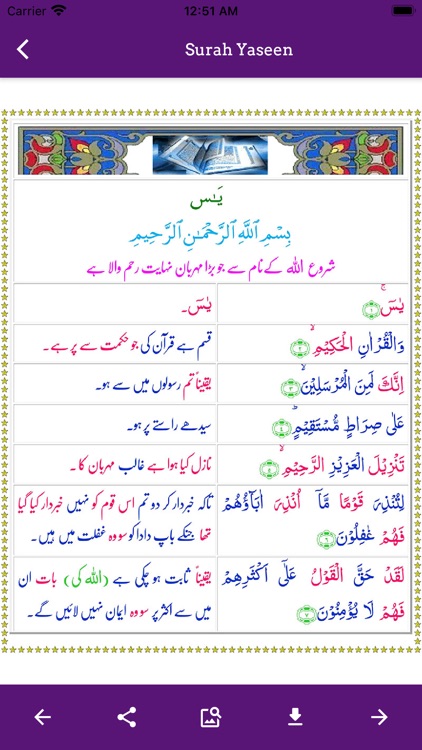 Carrier 12:51 AM
Surah Yaseen
يٰسٓ
بِسْمِ ٱللَّهِ ٱلرَّحْمَـٰنِ ٱلرَّحِيمِ
شروع اللہ کے نام سے جو بڑا مہربان نہایت رحم والا ہے
يٰسٓ ۚ ﴿١﴾
یٰسٓ۔
وَالْقُرْاٰنِ الْحَكِيْمِ ۙ ﴿٢﴾
قسم ہے قرآن کی جو حکمت سے پر ہے۔
اِنَّكَ لَمِنَ الْمُرْسَلِيْنَ ۙ ﴿٣﴾
یقیناً تم رسولوں میں سے ہو۔
عَلٰى صِرَاطٍ مُّسْتَقِيْمٍ ؕ ﴿٤﴾
سیدھے راستے پر ہو۔
تَنْزِيْلَ الْعَزِيْزِ الرَّحِيْمِ ۙ ﴿٥﴾
نازل کیا ہوا ہے غالب مہربان کا۔
لِتُنْذِرَ قَوْمًا مَّاۤ اُنْذِرَ اٰبَآؤُهُمْ
فَهُمْ غٰفِلُوْنَ ﴿٦﴾
تاکہ خبردار کر دو تم اس قوم کو نہیں خبردار کیا گیا
تھا جنکے باپ دادا کو سو وہ غفلت میں ہیں۔
لَقَدْ حَقَّ الْقَوْلُ عَلٰٓى اَكْثَرِهِمْ
فَهُمْ لَا يُؤْمِنُوْنَ ﴿٧﴾
یقیناً ثابت ہو چکی ہے (اللہ کی) بات ان
میں سے اکثر پر سو وہ ایمان نہیں لائیں گے۔